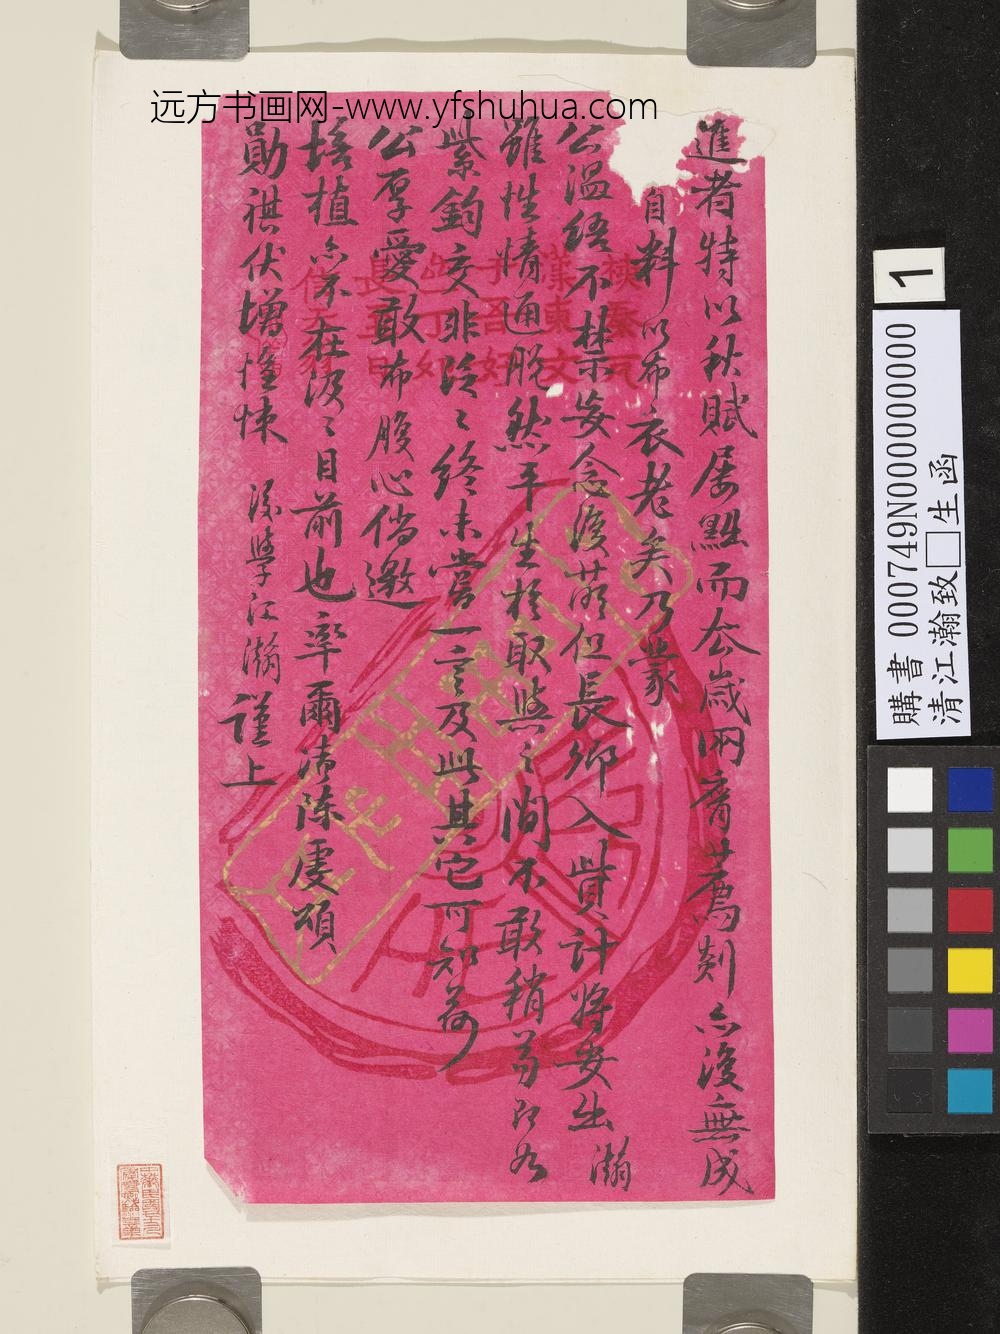 远方书画网-www.yfshuhua.com
進者特以秋賦屢黜而公歲兩膏薦剡亦復無成
自料以布衣老矣乃蒙
公溫語不禁妄念復萌但長卿入貲計將安出瀚
雖性情通脫然平生於取與之間不敢稍苟即如
紫鈞交非泛泛終未嘗一言及此其它可知荷
公厚愛敢布腹心倘邀
培植亦不在汲汲目前也率爾清陳虔頌
勛祺伏增惶悚 後學江瀚謹上
漢東文
長
1
購書 000749N000000000
清江瀚致□生函